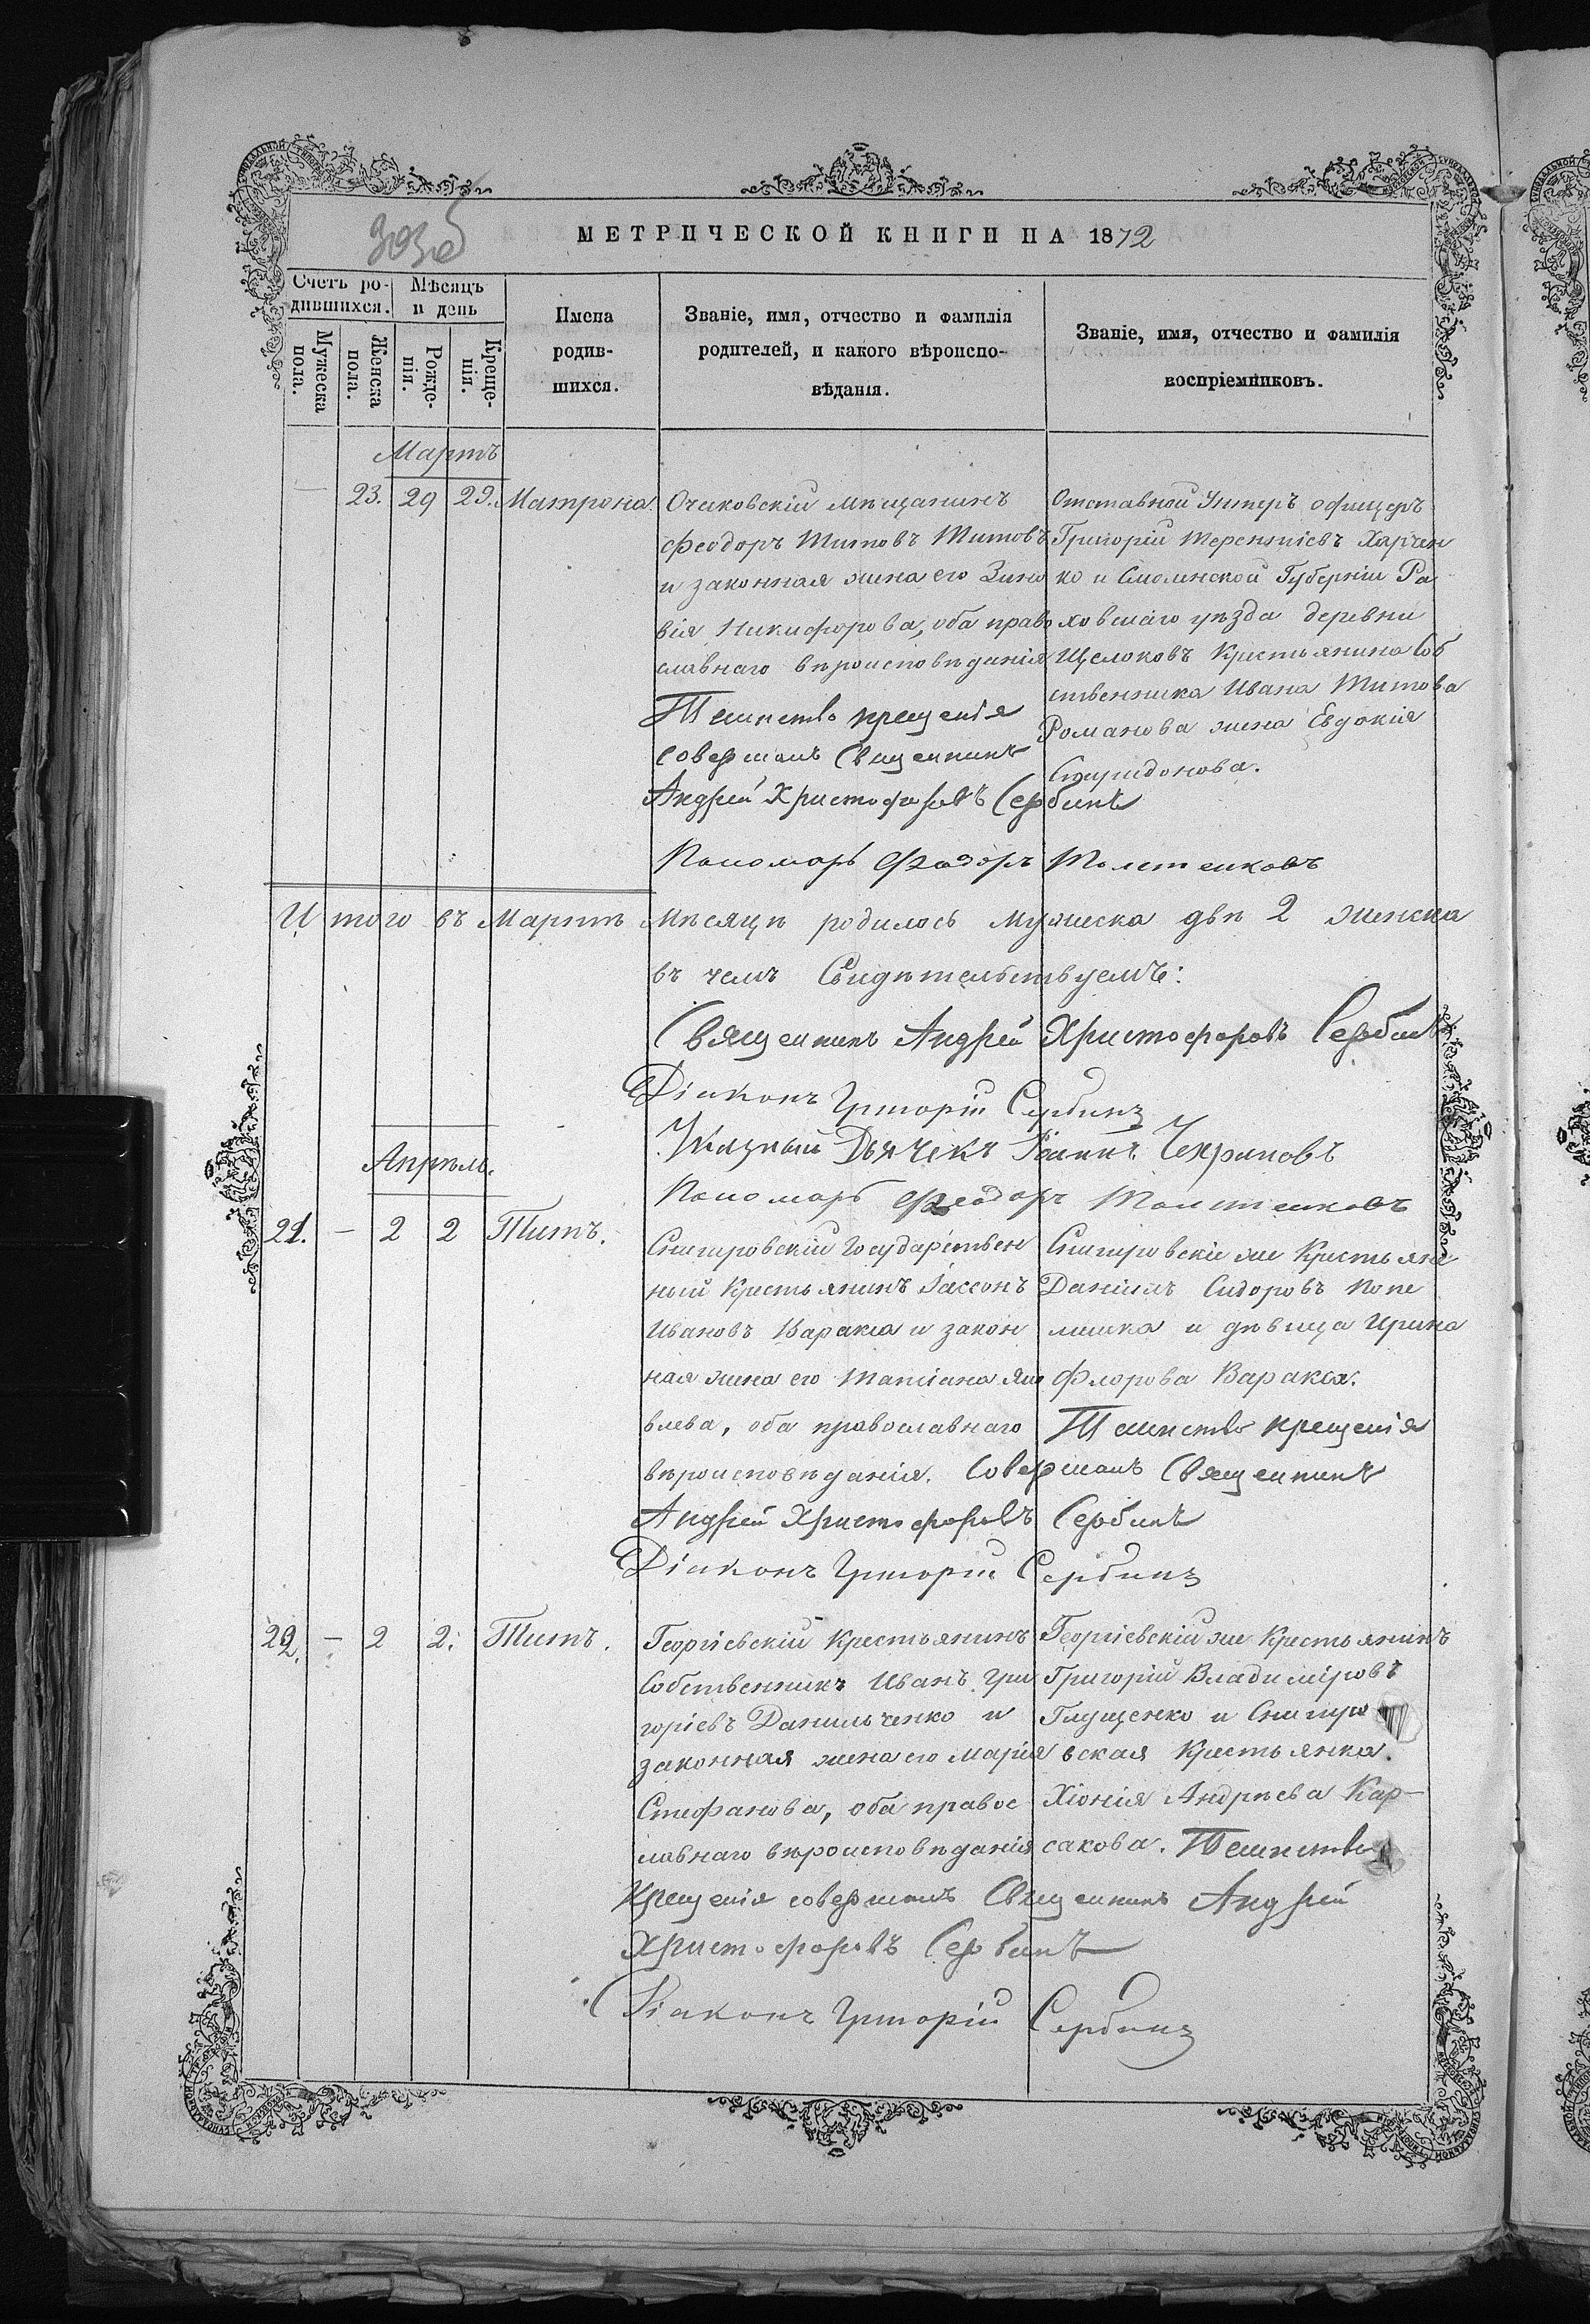 МЕТРИЧЕСКОЙ КНИГИ НА 1872
Счетъ ро-
дившихся.
Мѣсяцъ
и день
Мужеска
пола.
Женска
пола.
Рожде-
нія.
Креще-
нія.
Имена
родив-
шихся.
Званіе, имя, отчество и фамилія
родителей, и какого вѣроиспо-
вѣданія.
Званіе, имя, отчество и фамилія
воспріемниковъ.
Мартъ
— 23. 29 29. Матрона.
Очаковскій мѣщанинъ
Феодоръ Титовъ Титовъ
и законная жена его Зино
вія Никифорова, оба право
славнаго вѣроисповѣданія
Таинство крещенія
совершалъ Священникъ
Андрей Христофоровъ Сербинъ
Пономарь Феодоръ Толстиковъ
Отставной Унтеръ офицеръ
Григорій Терентіевъ Харчен
ко и Смоленской Губерніи
уѣзда деревни
Щелоковъ Крестьянина Соб
ственника Ивана Титова
Романова жена Евдокія
Спиридонова.
Итого въ Мартѣ Мѣсяцѣ родилось мужеска двѣ 2 женска
въ чемъ Свидѣтельствуемъ:
Священникъ Андрей Христофоровъ Сербинъ
Діаконъ Григорій Сербинъ
Указный Дьячекъ Іоаннъ
Пономарь Феодоръ Толстиковъ
Апрѣль.
21. — 2 2 Титъ.
Снигировскій Государствен
ный Крестьянинъ Іассонъ
Ивановъ Варакса и закон
ная жена его Татіана Яко
влева, оба православнаго
вѣроисповѣданія.
Снигировскіе же Крестьяне
Даніилъ Сидоровъ Попе
люшка и дѣвица Ирина
Флорова Варакса.
Таинство крещенія
совершалъ Священникъ
Андрей Христофоровъ Сербинъ
Діаконъ Григорій Сербинъ
22. — 2 2. Титъ.
Георгіевскій Крестьянинъ
Собственникъ Иванъ Гри
горіевъ Данильченко и
законная жена его Марія
Стефанова, оба правос
лавнаго вѣроисповѣданія
Георгіевскій же Крестьянинъ
Григорій Владиміровъ
Глущенко и Снигиро
вская Крестьянка.
Хіонія Андреева Кар-
сакова. Таинство
Крещенія совершалъ Священникъ Андрей
Христофоровъ Сербинъ
Діаконъ Григорій Сербинъ